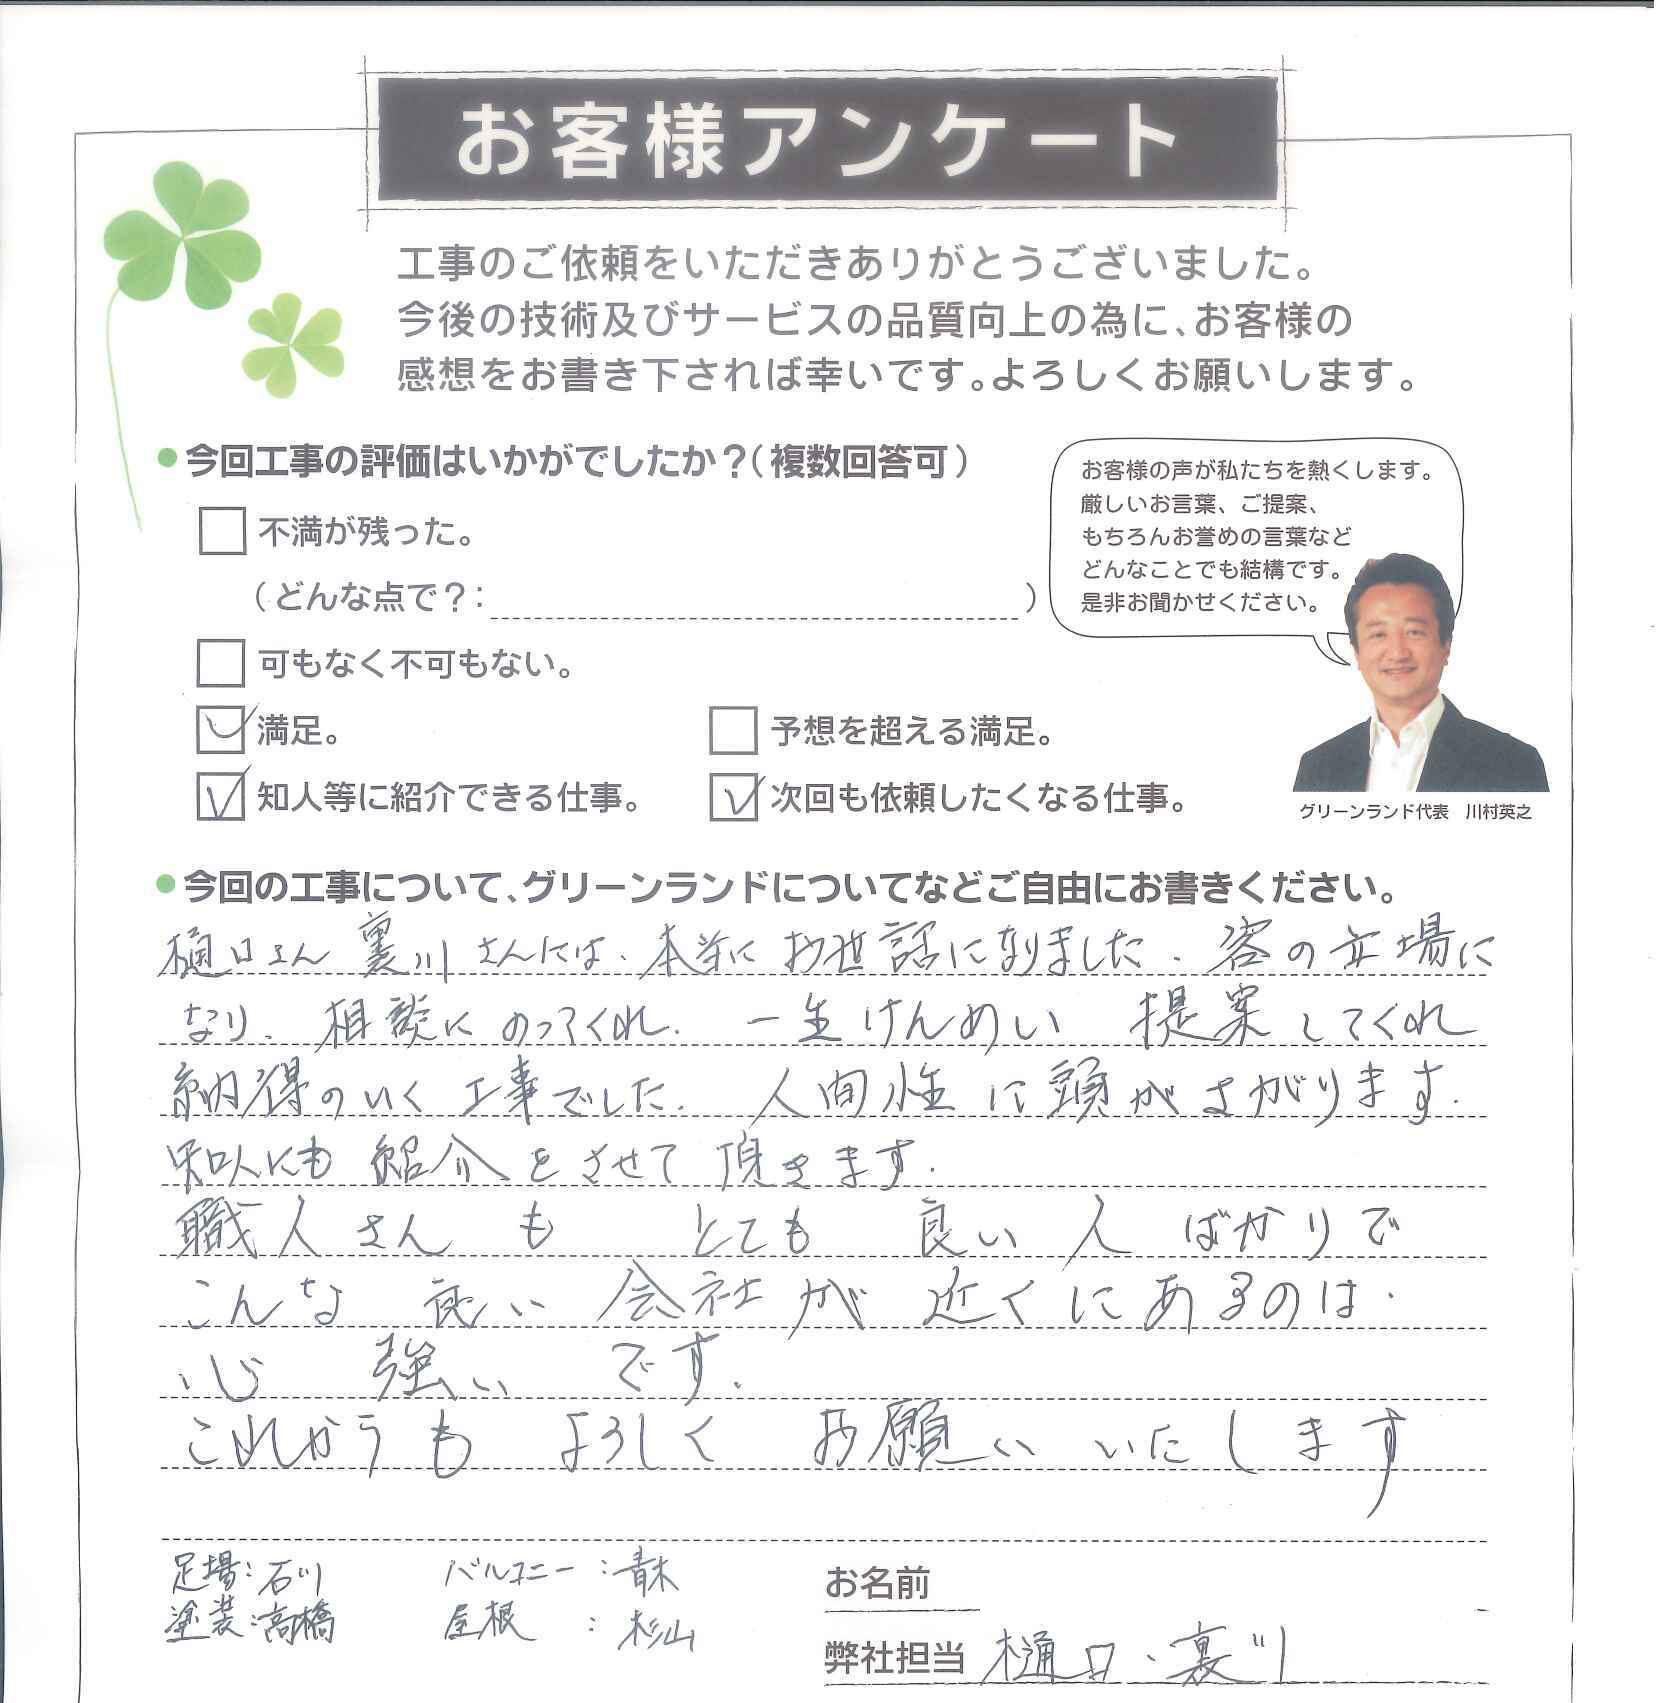 お客様アンケート
工事のご依頼をいただきありがとうございました。
今後の技術及びサービスの品質向上の為に、お客様の
感想をお書き下されば幸いです。よろしくお願いします。
●今回工事の評価はいかがでしたか？（複数回答可）
お客様の声が私たちを熱くします。
厳しいお言葉、ご提案、
もちろんお誉めの言葉など
どんなことでも結構です。
是非お聞かせください。
□ 不満が残った。
（どんな点で？： ）
□ 可もなく不可もない。
☑ 満足。 □ 予想を超える満足。
☑ 知人等に紹介できる仕事。 ☑ 次回も依頼したくなる仕事。
グリーンランド代表 川村英之
●今回の工事について、グリーンランドについてなどご自由にお書きください。
樋口さん 裏川さんには、本当に お世話になりました。客の立場に
なり、相談にのってくれ、一生けんめい 提案してくれ
納得のいく工事でした。人間性に頭がさがります。
知人にも紹介をさせて頂きます。
職人さんも とても 良い人ばかりで
こんな 良い 会社が 近くにあるのは、
心強いです。
これからも よろしく お願い いたします
足場：石川 バルコニー：青木
塗装：高橋 屋根：杉山
お名前
弊社担当 樋口、裏川